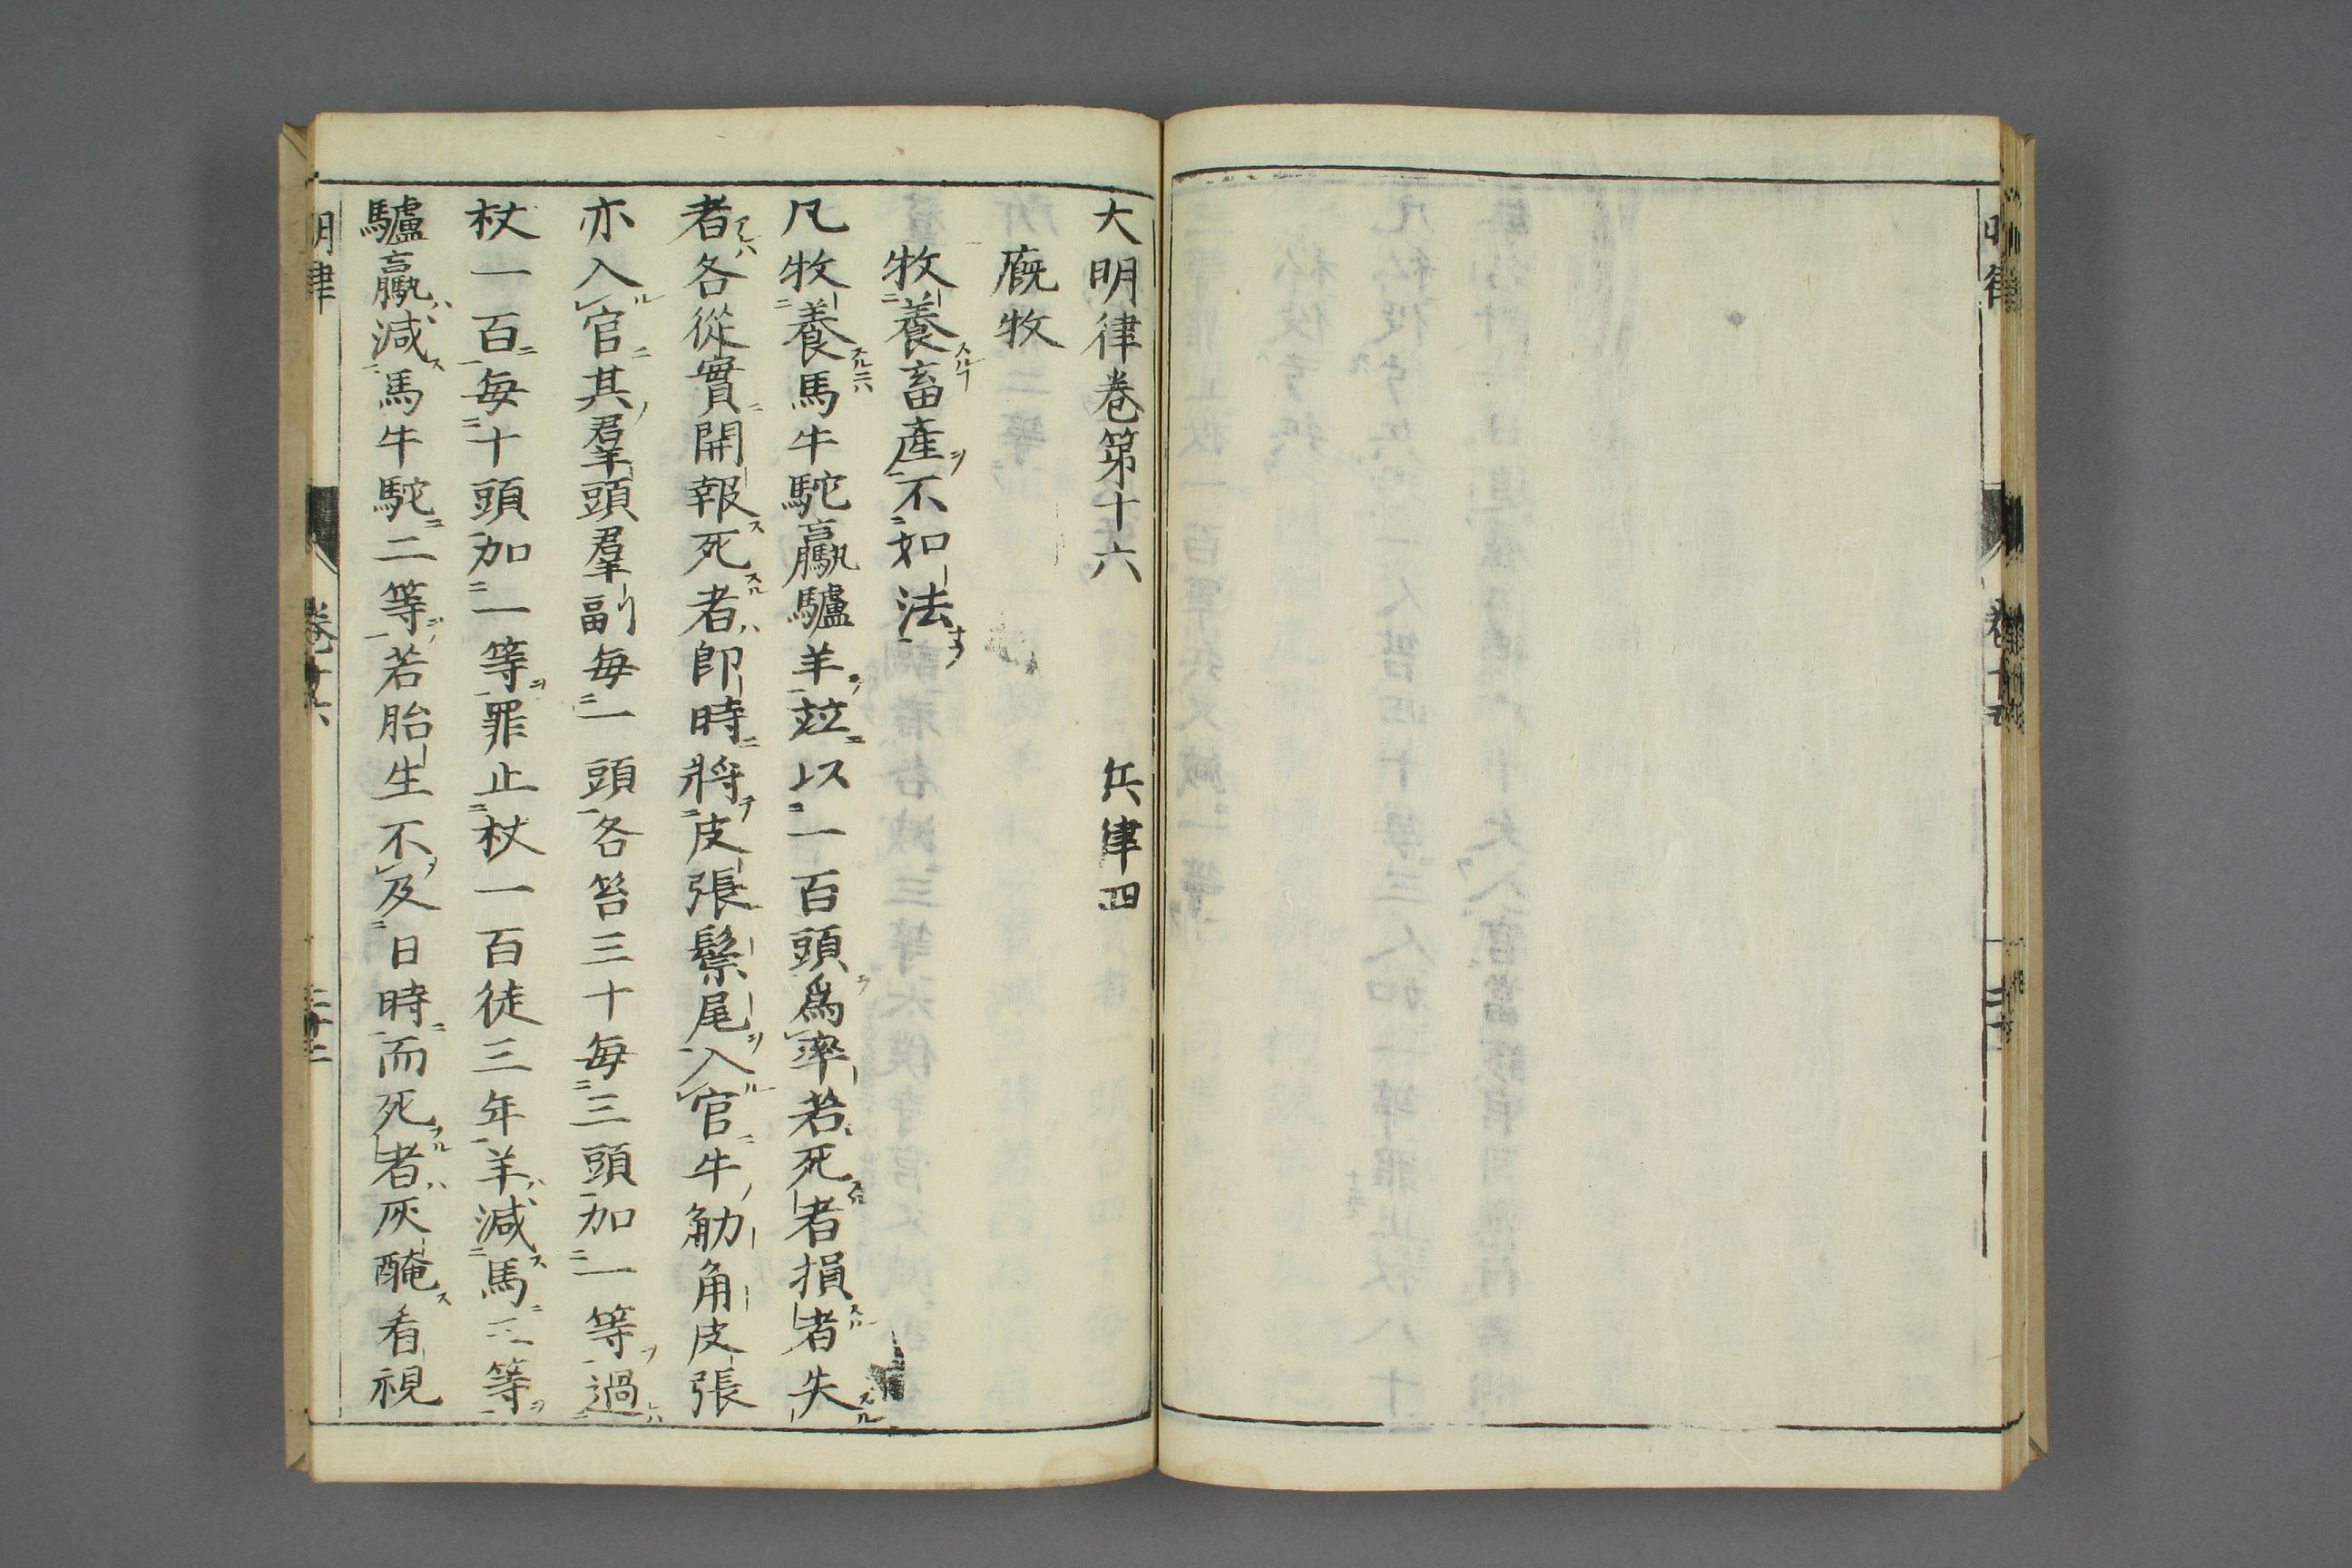 大明律卷第十六　兵律四
廐牧
牧養畜產不如法
凡牧養馬牛駝驘驢羊竝以一百頭爲率若死者損者失
者各從實開報死者卽時將皮張鬃尾入官牛觔角皮張
亦入官其羣頭羣副每一頭各笞三十每三頭加一等過
杖一百每十頭加一等罪止杖一百徒三年羊減馬三等
驢驘減馬牛駝二等若胎生不及日時而死者灰醃看視
明律　卷十六